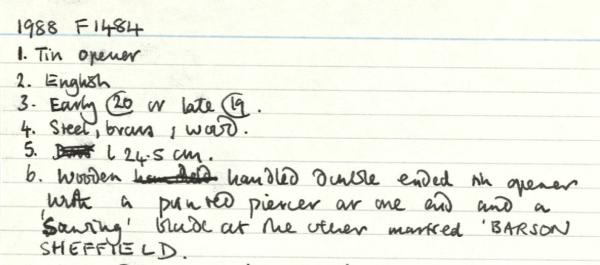 1988 F1484
1. Tin opener
2. English
3. Early 20 or late 19.
4. Steel, brass, wood.
5. L 24.5 cm.
6. Wooden handled double ended tin opener
with a pointed piercer at one end and a
'Sawing' blade at the other marked 'BARSON
SHEFFIELD.